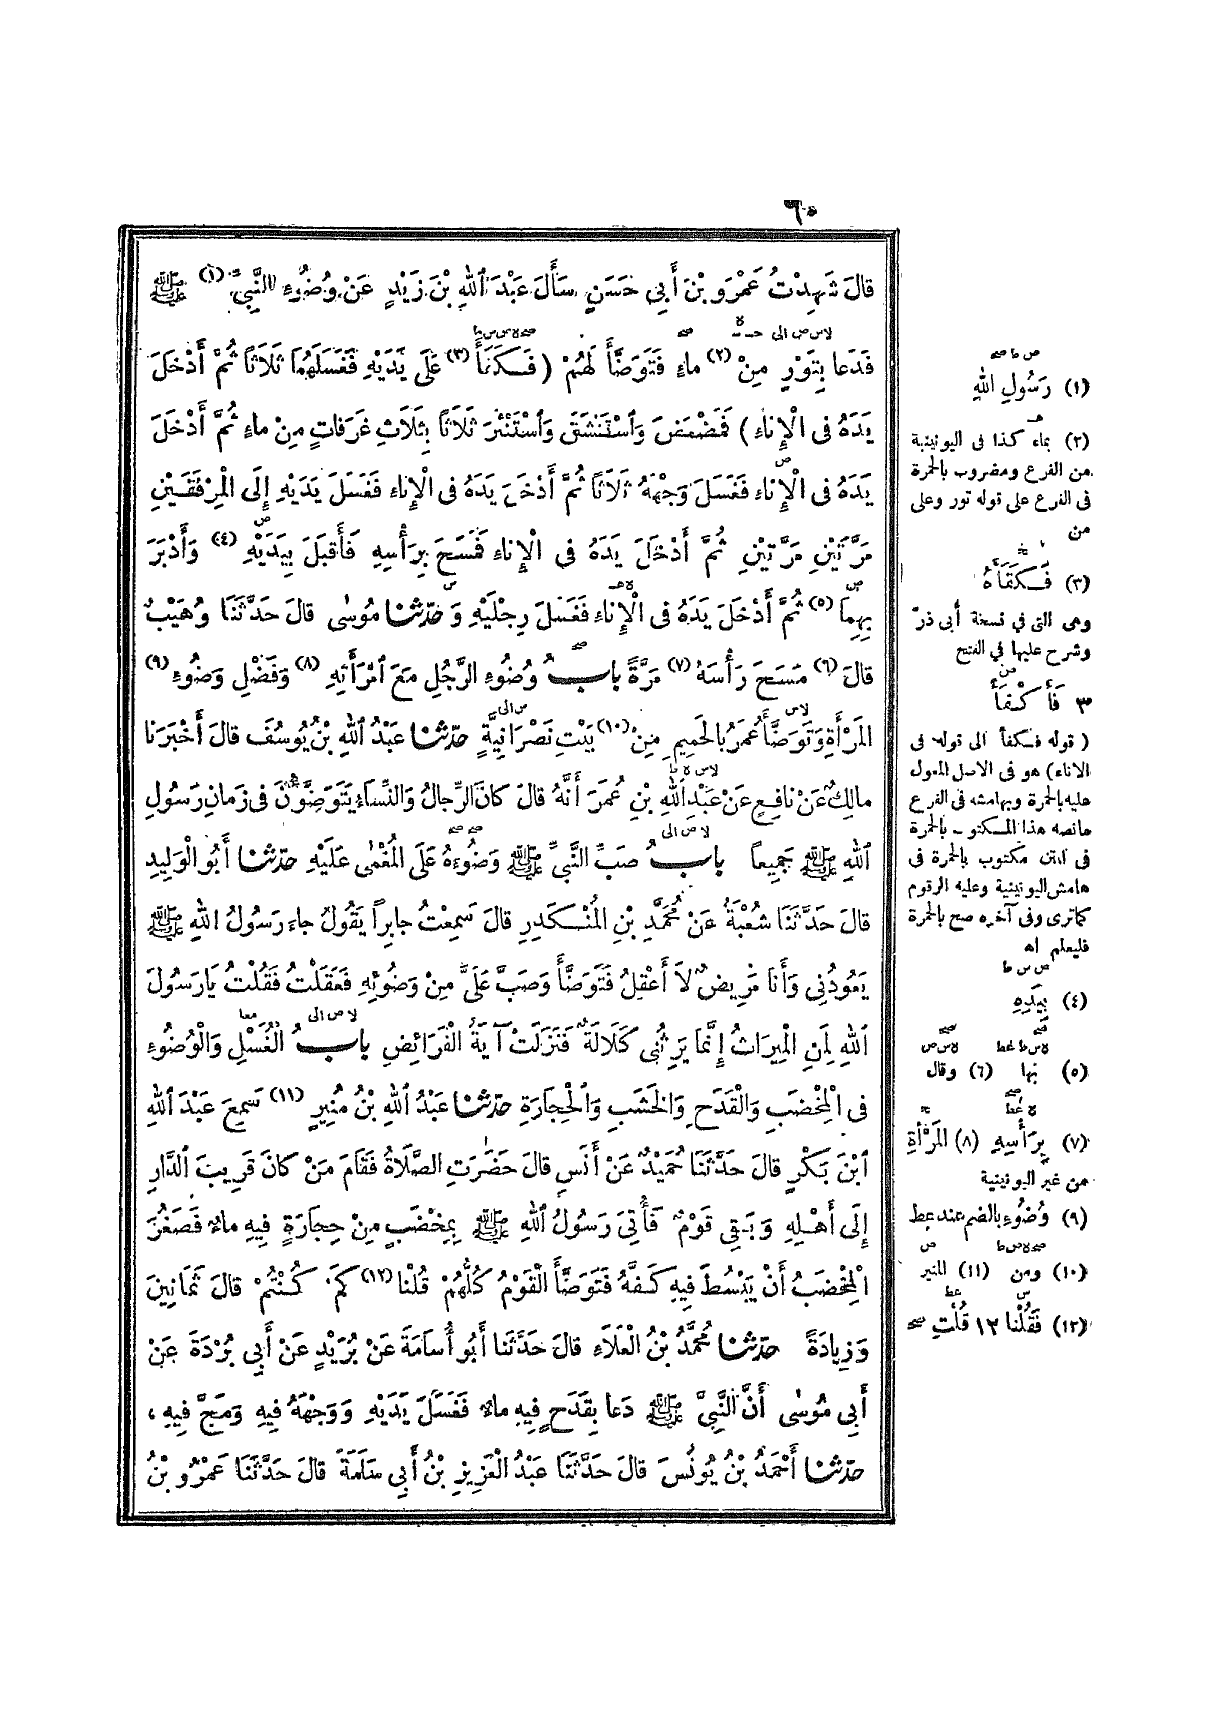 ٦٠
قالَ شَهِدْتُ عَمْرَو بْنَ أَبِي حَسَنٍ سَأَلَ عَبْدَ اللهِ بْنَ زَيْدٍ عَنْ وُضُوءِ النَّبِيِّ (١) ﷺ
فَدَعا بِتَوْرٍ مِنْ (٢) ماءٍ فَتَوَضَّأَ لَهُمْ ( فَكَفَأَ (٣) عَلَى يَدَيْهِ فَغَسَلَهُما ثَلَاثًا ثُمَّ أَدْخَلَ
يَدَهُ فى الْإِناءِ ) فَمَضْمَضَ وَاسْتَنْشَقَ وَاسْتَنْثَرَ ثَلَاثًا بِثَلَاثِ غَرَفاتٍ مِنْ ماءٍ ثُمَّ أَدْخَلَ
يَدَهُ فى الْإِناءِ فَغَسَلَ وَجْهَهُ ثَلَاثًا ثُمَّ أَدْخَلَ يَدَهُ فى الْإِناءِ فَغَسَلَ يَدَيْهِ إِلَى الْمِرْفَقَيْنِ
مَرَّتَيْنِ مَرَّتَيْنِ ثُمَّ أَدْخَلَ يَدَهُ فى الْإِناءِ فَمَسَحَ بِرَأْسِهِ فَأَقْبَلَ بِيَدَيْهِ (٤) وَأَدْبَرَ
بِهِما (٥) ثُمَّ أَدْخَلَ يَدَهُ فى الْإِناءِ فَغَسَلَ رِجْلَيْهِ وَ حَدَّثَنَا مُوسَى قالَ حَدَّثَنَا وُهَيْبٌ
قالَ (٦) مَسَحَ رَأْسَهُ (٧) مَرَّةً بابُ وُضُوءِ الرَّجُلِ مَعَ امْرَأَتِهِ (٨) وَفَضْلِ وَضُوءِ (٩)
الْمَرْأَةِ وَتَوَضَّأَ عُمَرُ بِالْحَمِيمِ مِنْ (١٠) بَيْتِ نَصْرَانِيَّةٍ حَدَّثَنَا عَبْدُ اللهِ بْنُ يُوسُفَ قالَ أَخْبَرَنَا
مالِكٌ عَنْ نافِعٍ عَنْ عَبْدِ اللهِ بْنِ عُمَرَ أَنَّهُ قالَ كانَ الرِّجالُ وَالنِّساءُ يَتَوَضَّؤُنَ فى زَمانِ رَسُولِ
اللهِ ﷺ جَمِيعاً بابُ صَبِّ النَّبِيِّ ﷺ وَضُوءَهُ عَلَى الْمُغْمَى عَلَيْهِ حَدَّثَنَا أَبُو الْوَلِيدِ
قالَ حَدَّثَنَا شُعْبَةُ عَنْ مُحَمَّدِ بْنِ الْمُنْكَدِرِ قالَ سَمِعْتُ جابِراً يَقُولُ جاءَ رَسُولُ اللهِ ﷺ
يَعُودُنِى وَأَنا مَرِيضٌ لَا أَعْقِلُ فَتَوَضَّأَ وَصَبَّ عَلَىَّ مِنْ وَضُوئِهِ فَعَقَلْتُ فَقُلْتُ يا رَسُولَ
اللهِ لِمَنِ الْمِيرَاثُ إِنَّما يَرِثُنِى كَلَالَةٌ فَنَزَلَتْ آيَةُ الْفَرَائِضِ بابُ الْغُسْلِ وَالْوُضُوءِ
فى الْمِخْضَبِ وَالْقَدَحِ وَالْخَشَبِ وَالْحِجارَةِ حَدَّثَنَا عَبْدُ اللهِ بْنُ مُنِيرٍ (١١) سَمِعَ عَبْدَ اللهِ
ابْنَ بَكْرٍ قالَ حَدَّثَنَا حُمَيْدٌ عَنْ أَنَسٍ قالَ حَضَرَتِ الصَّلَاةُ فَقَامَ مَنْ كانَ قَرِيبَ الدَّارِ
إِلَى أَهْلِهِ وَبَقِىَ قَوْمٌ فَأُتِىَ رَسُولُ اللهِ ﷺ بِمِخْضَبٍ مِنْ حِجارَةٍ فِيهِ ماءٌ فَصَغُرَ
الْمِخْضَبُ أَنْ يَبْسُطَ فِيهِ كَفَّهُ فَتَوَضَّأَ الْقَوْمُ كُلُّهُمْ قُلْنا (١٢) كَمْ كُنْتُمْ قالَ ثَمَانِينَ
وَزِيادَةً حَدَّثَنَا مُحَمَّدُ بْنُ الْعَلَاءِ قالَ حَدَّثَنَا أَبُو أُسامَةَ عَنْ بُرَيْدٍ عَنْ أَبِى بُرْدَةَ عَنْ
أَبِى مُوسَى أَنَّ النَّبِيَّ ﷺ دَعا بِقَدَحٍ فِيهِ ماءٌ فَغَسَلَ يَدَيْهِ وَوَجْهَهُ فِيهِ وَمَجَّ فِيهِ ،
حَدَّثَنَا أَحْمَدُ بْنُ يُونُسَ قالَ حَدَّثَنَا عَبْدُ الْعَزِيزِ بْنُ أَبِى سَلَمَةَ قالَ حَدَّثَنَا عَمْرُو بْنُ
(١) رَسُولِ اللهِ
(٢) بماء كذا فى اليونينية
من الفرع ومضروب بالحمرة
فى الفرع على قوله تور وعلى
من
(٣) فَكَفَأَهُ
وهى التى فى نسخة أبى ذرّ
وشرح عليها فى الفتح
٣ فَأَكْفَأَ
( قوله فكفأ الى قوله فى
الاناء) هو فى الاصل المعول
عليه بالحمرة وبهامشه فى الفرع
مانصه هذا المكتوب بالحمرة
فى مكتوب بالحمرة فى
هامش اليونينية وعليه الرقوم
كماترى وفى آخره صح بالحمرة
فليعلم اه
(٤) بِيَدِهِ
(٥) بها (٦) وقال
(٧) بِرَأْسِهِ (٨) الْمَرْأَةِ
من غير اليونينية
(٩) وُضُوءِ بالضم عند عط
(١٠) ومن (١١) المنير
(١٢) فَقُلْنا ١٢ قُلْتُ صح